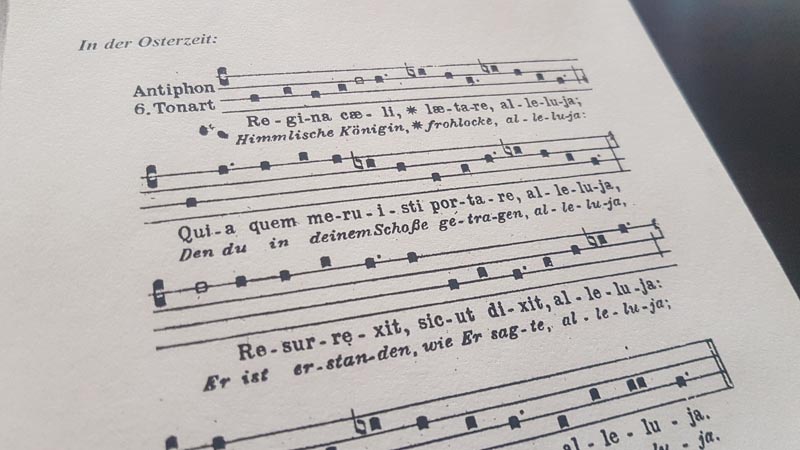 In der Osterzeit:
Antiphon
6. Tonart
Re-gi-na cæ-li, * læ-ta-re, al-le-lu-ja;
Himmlische Königin, * frohlocke, al-le-lu-ja:
Qui-a quem me-ru-i-sti por-ta-re, al-le-lu-ja,
Den du in deinem Schoße ge-tra-gen, al-le-lu-ja,
Re-sur-re-xit, sic-ut di-xit, al-le-lu-ja:
Er ist er-stan-den, wie Er sag-te, al-le-lu-ja;
al-le-lu-ja.
lu-ja.